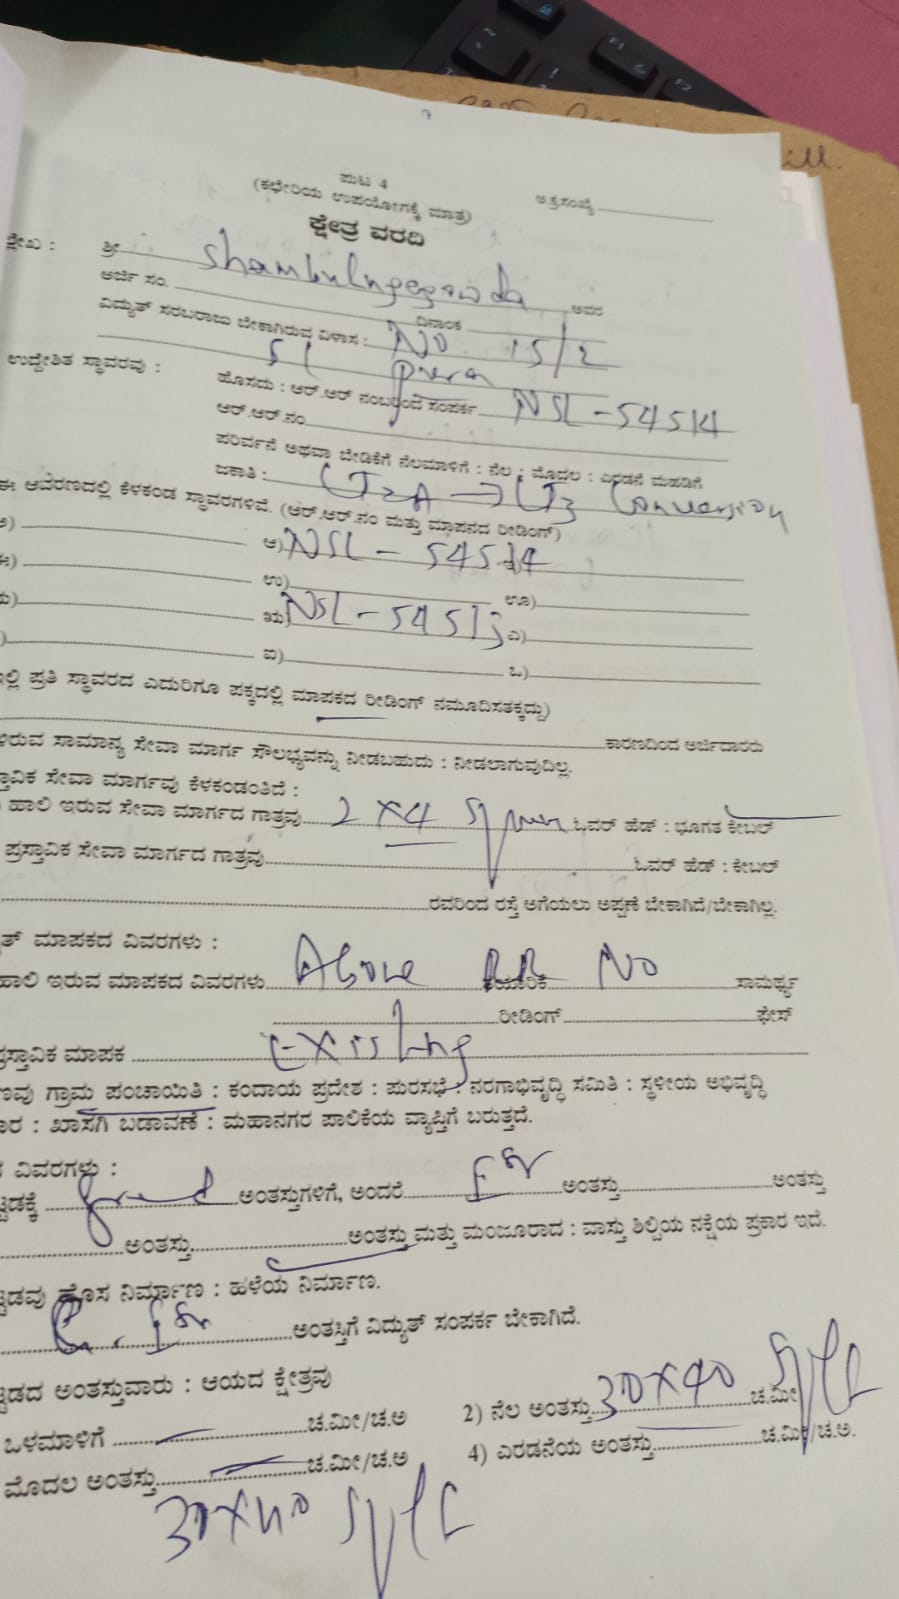 ಪುಟ 4
(ಕಛೇರಿಯ ಉಪಯೋಗಕ್ಕೆ ಮಾತ್ರ)
ಕ್ಷೇತ್ರ ವರದಿ
ಶ್ರೀ ಅವರ
ಅರ್ಜಿ ಸಂ. ದಿನಾಂಕ
ವಿದ್ಯುತ್ ಸರಬರಾಜು ಬೇಕಾಗಿರುವ ವಿಳಾಸ : No. 15/2
ಉದ್ದೇಶಿತ ಸ್ಥಾವರವು :
ಹೊಸದು : ಆರ್.ಆರ್ ನಂಬರಿಂದ ಸಂಪರ್ಕ NSL-54514
ಆರ್.ಆರ್.ನಂ
ಪರಿವರ್ನೆ ಅಥವಾ ಬೇಡಿಕೆಗೆ ನೆಲಮಾಳಿಗೆ : ನೆಲ : ಮೊದಲ : ಎರಡನೆ ಮಹಡಿಗೆ
ಜಕಾತಿ : LT2A → LT3 Conversion
ಈ ಆವರಣದಲ್ಲಿ ಕೆಳಕಂಡ ಸ್ಥಾವರಗಳಿವೆ. (ಆರ್.ಆರ್.ನಂ ಮತ್ತು ಮಾಪನದ ರೀಡಿಂಗ್)
ಆ) NSL-54514
ಉ) ಊ)
ಋ) NSL-54513 ಎ)
ಐ) ಒ)
ಪ್ರತಿ ಸ್ಥಾವರದ ಎದುರಿಗೂ ಪಕ್ಕದಲ್ಲಿ ಮಾಪಕದ ರೀಡಿಂಗ್ ನಮೂದಿಸತಕ್ಕದ್ದು)
ಕಾರಣದಿಂದ ಅರ್ಜಿದಾರರು
ಸಾಮಾನ್ಯ ಸೇವಾ ಮಾರ್ಗ ಸೌಲಭ್ಯವನ್ನು ನೀಡಬಹುದು : ನೀಡಲಾಗುವುದಿಲ್ಲ.
ಸೇವಾ ಮಾರ್ಗವು ಕೆಳಕಂಡಂತಿದೆ :
ಹಾಲಿ ಇರುವ ಸೇವಾ ಮಾರ್ಗದ ಗಾತ್ರವು 2 x 4 sqmm ಓವರ್ ಹೆಡ್ : ಭೂಗತ ಕೇಬಲ್
ಪ್ರಸ್ತಾವಿಕ ಸೇವಾ ಮಾರ್ಗದ ಗಾತ್ರವು ಓವರ್ ಹೆಡ್ : ಕೇಬಲ್
ರವರಿಂದ ರಸ್ತೆ ಅಗೆಯಲು ಅಪ್ಪಣೆ ಬೇಕಾಗಿದೆ/ಬೇಕಾಗಿಲ್ಲ.
ಮಾಪಕದ ವಿವರಗಳು :
ಹಾಲಿ ಇರುವ ಮಾಪಕದ ವಿವರಗಳು Above RR No ಸಾಮರ್ಥ್ಯ
ರೀಡಿಂಗ್ ಫೇಸ್
ಪ್ರಸ್ತಾವಿಕ ಮಾಪಕ Existing
ಗ್ರಾಮ ಪಂಚಾಯಿತಿ : ಕಂದಾಯ ಪ್ರದೇಶ : ಪುರಸಭೆ : ನರಗಾಭಿವೃದ್ಧಿ ಸಮಿತಿ : ಸ್ಥಳೀಯ ಅಭಿವೃದ್ಧಿ
: ಖಾಸಗಿ ಬಡಾವಣೆ : ಮಹಾನಗರ ಪಾಲಿಕೆಯ ವ್ಯಾಪ್ತಿಗೆ ಬರುತ್ತದೆ.
ವಿವರಗಳು :
ಅಂತಸ್ತುಗಳಿಗೆ, ಅಂದರೆ ಅಂತಸ್ತು ಅಂತಸ್ತು
ಅಂತಸ್ತು ಅಂತಸ್ತು ಮತ್ತು ಮಂಜೂರಾದ : ವಾಸ್ತು ಶಿಲ್ಪಿಯ ನಕ್ಷೆಯ ಪ್ರಕಾರ ಇದೆ.
ಹೊಸ ನಿರ್ಮಾಣ : ಹಳೆಯ ನಿರ್ಮಾಣ.
ಅಂತಸ್ತಿಗೆ ವಿದ್ಯುತ್ ಸಂಪರ್ಕ ಬೇಕಾಗಿದೆ.
ಅಂತಸ್ತುವಾರು : ಆಯದ ಕ್ಷೇತ್ರವು
ಒಳಮಾಳಿಗೆ ಚ.ಮೀ/ಚ.ಅ 2) ನೆಲ ಅಂತಸ್ತು 30x40 ಚ.ಮೀ
ಮೊದಲ ಅಂತಸ್ತು ಚ.ಮೀ/ಚ.ಅ 4) ಎರಡನೆಯ ಅಂತಸ್ತು ಚ.ಮೀ/ಚ.ಅ.
30x40